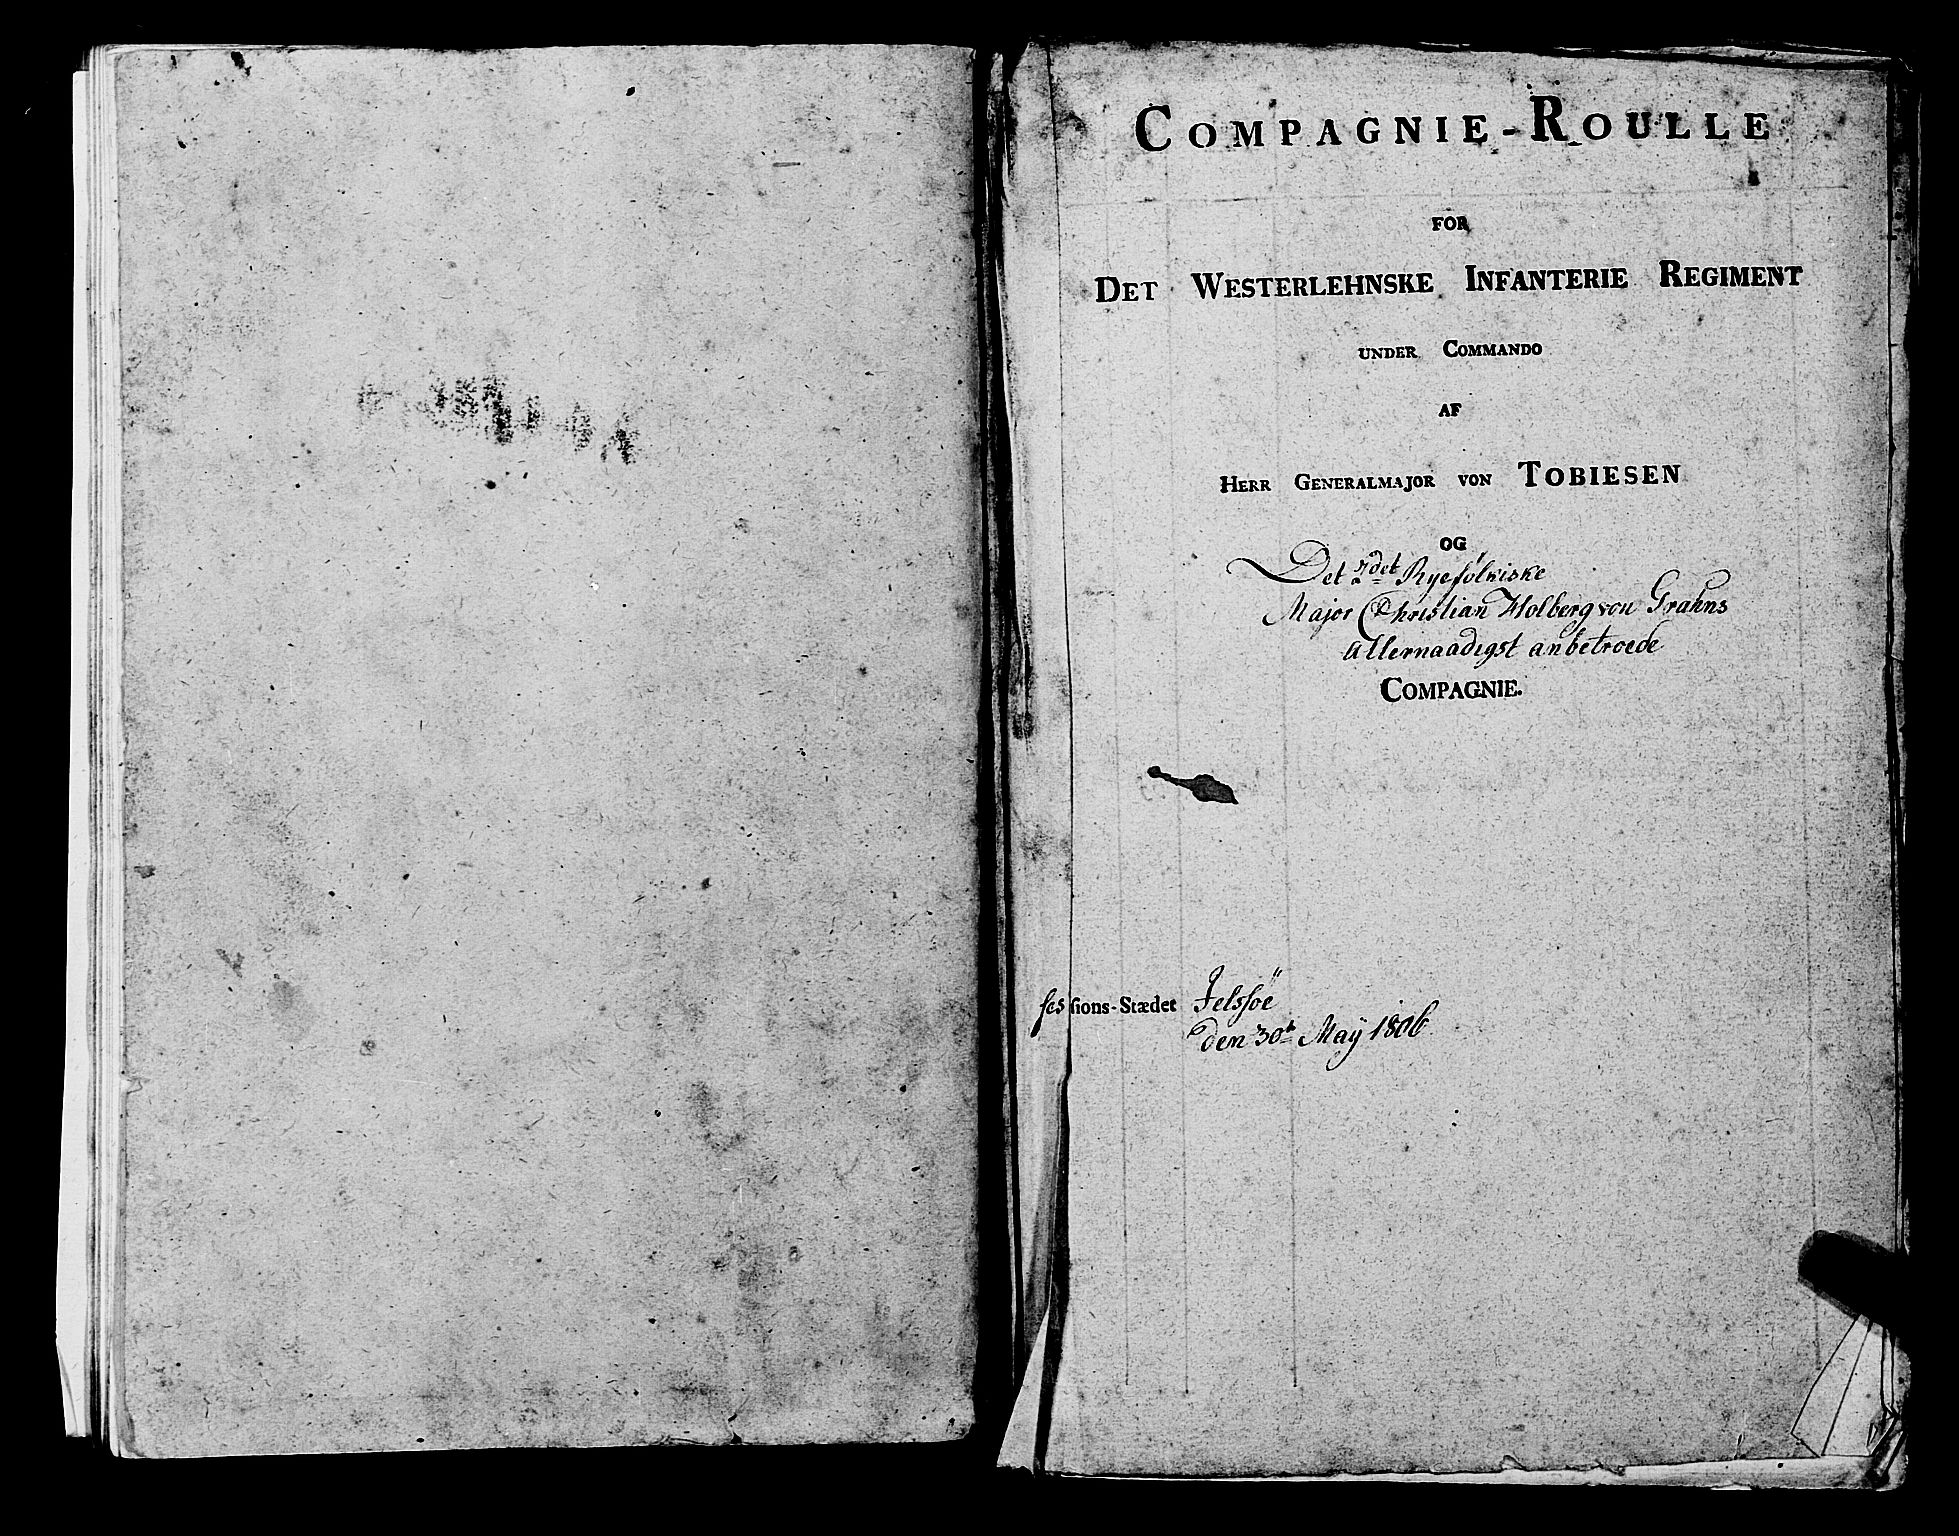 COMPAGNIE-ROULLE
FOR
DET WESTERLEHNSKE INFANTERIE REGIMENT
UNDER COMMANDO
AF
HERR GENERALMAJOR VON TOBIESEN
OG
Det 2det Ryefølkiske
Major Christian Holberg von Grahns
allernaadigst anbetroede
COMPAGNIE.
Sessions-Stædet Jelsøe
den 30te Maÿ 1806